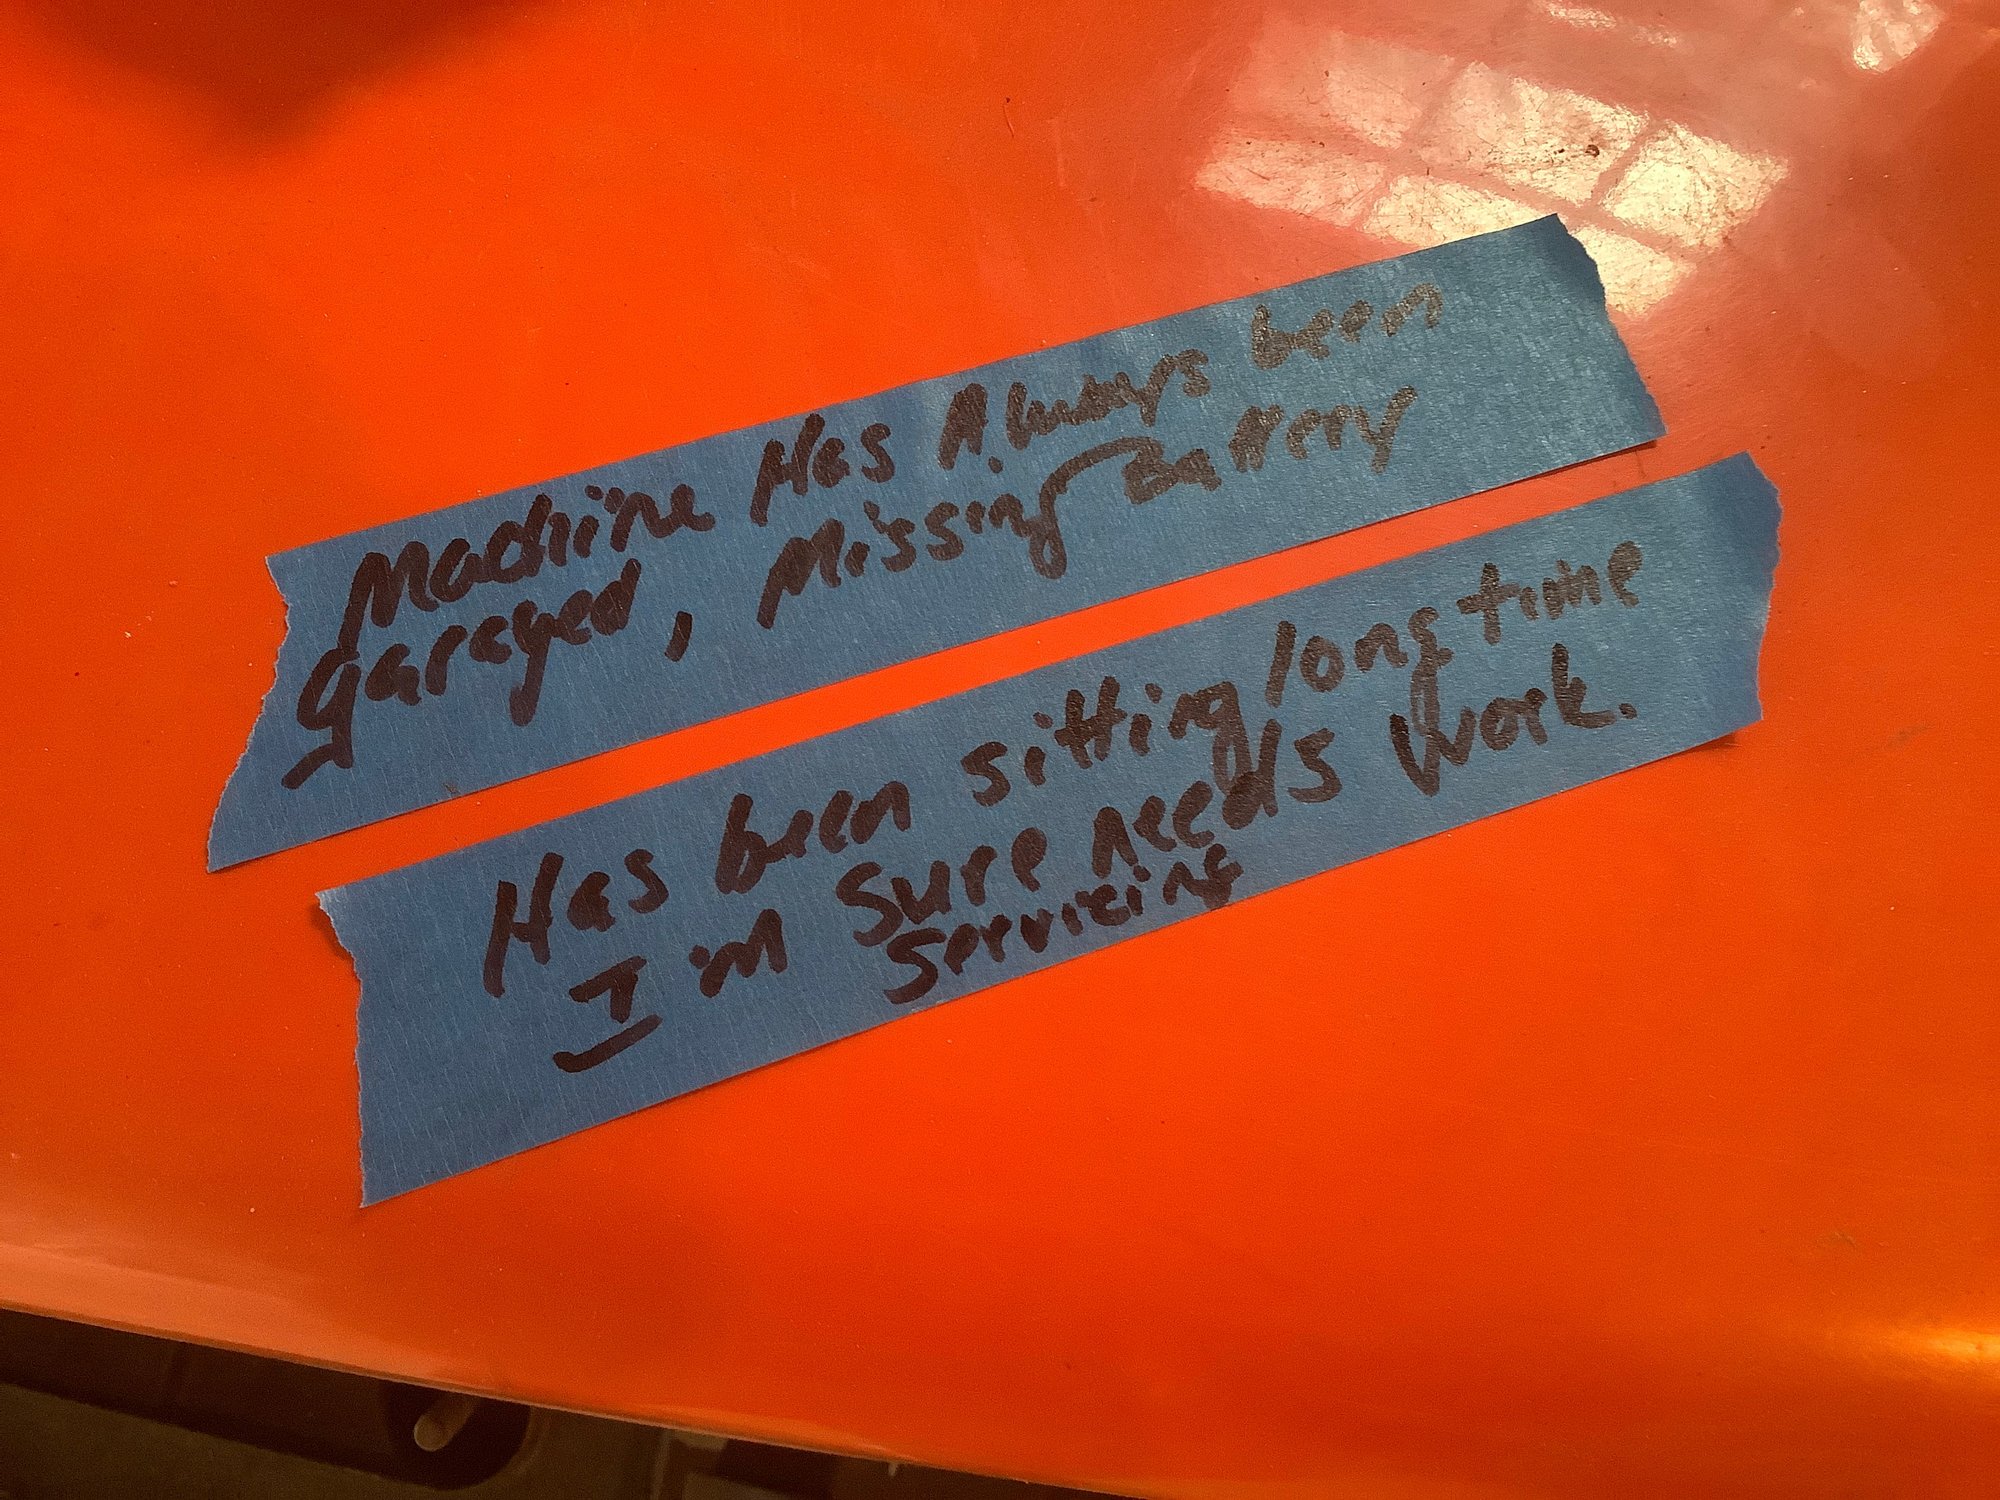 Machine Has Always been
garaged, Missing Battery
Has been sitting long time
I'm sure needs work.
servicing